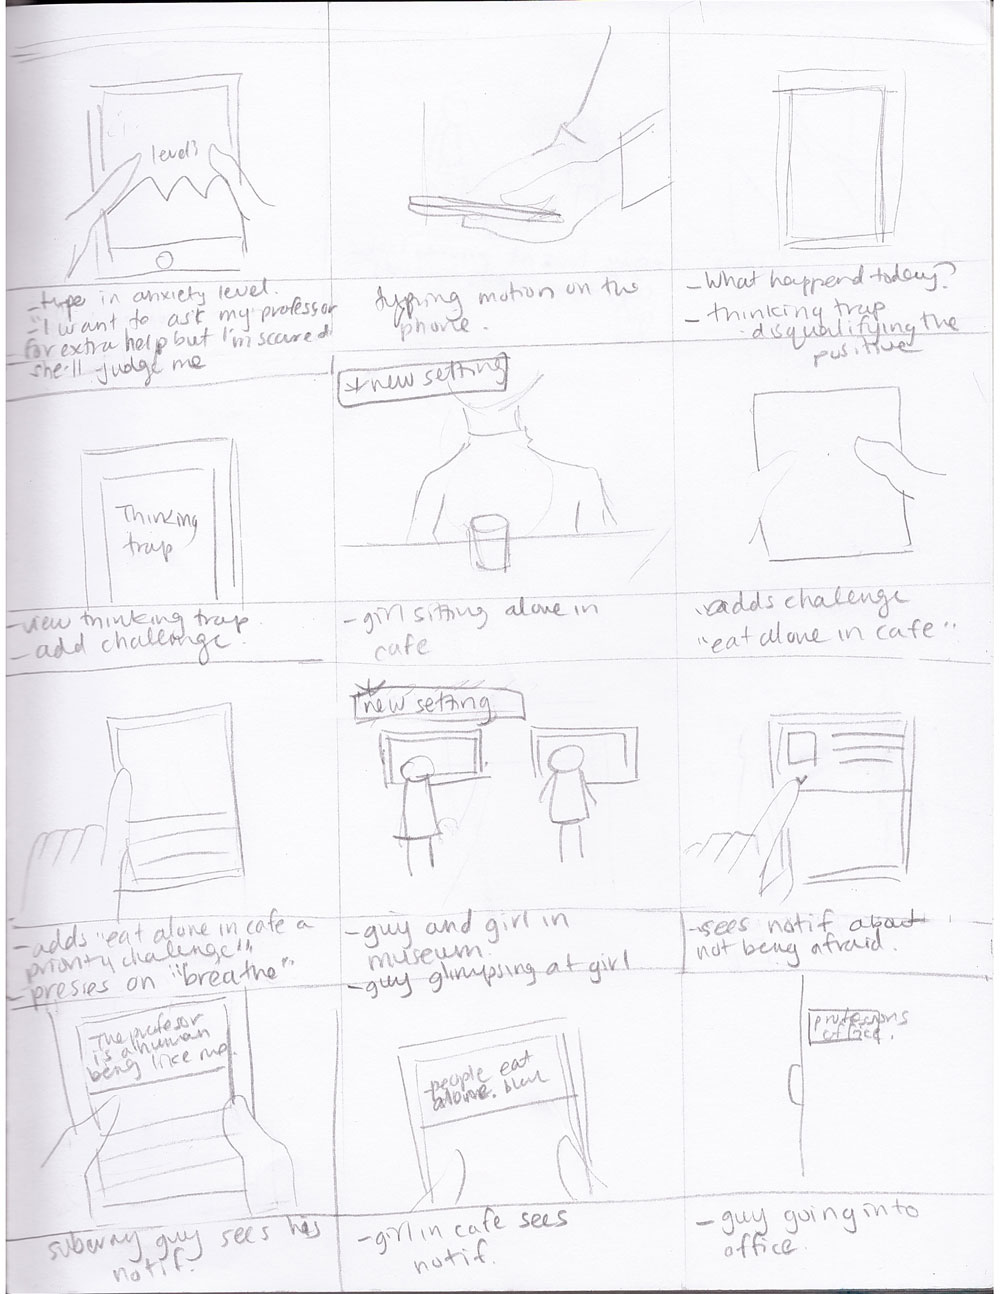 levels
- type in anxiety level.
- "I want to ask my professor
for extra help but I'm scared
she'll judge me
typing motion on the
phone.
- What happend today?
- thinking trap
- disqualifying the
positive
Thinking
trap
- view thinking trap
- add challenge.
* new setting
- girl sitting alone in
cafe
- adds challenge
"eat alone in cafe"
- adds "eat alone in cafe a
priority challenge"
- presses on "breathe"
* new setting
- guy and girl in
museum.
- guy glimpsing at girl
- sees notif about
not being afraid.
The professor
is a human
being like me.
subway guy sees his
notif.
people eat
alone.
- girl in cafe sees
notif.
professors
office.
- guy going into
office.